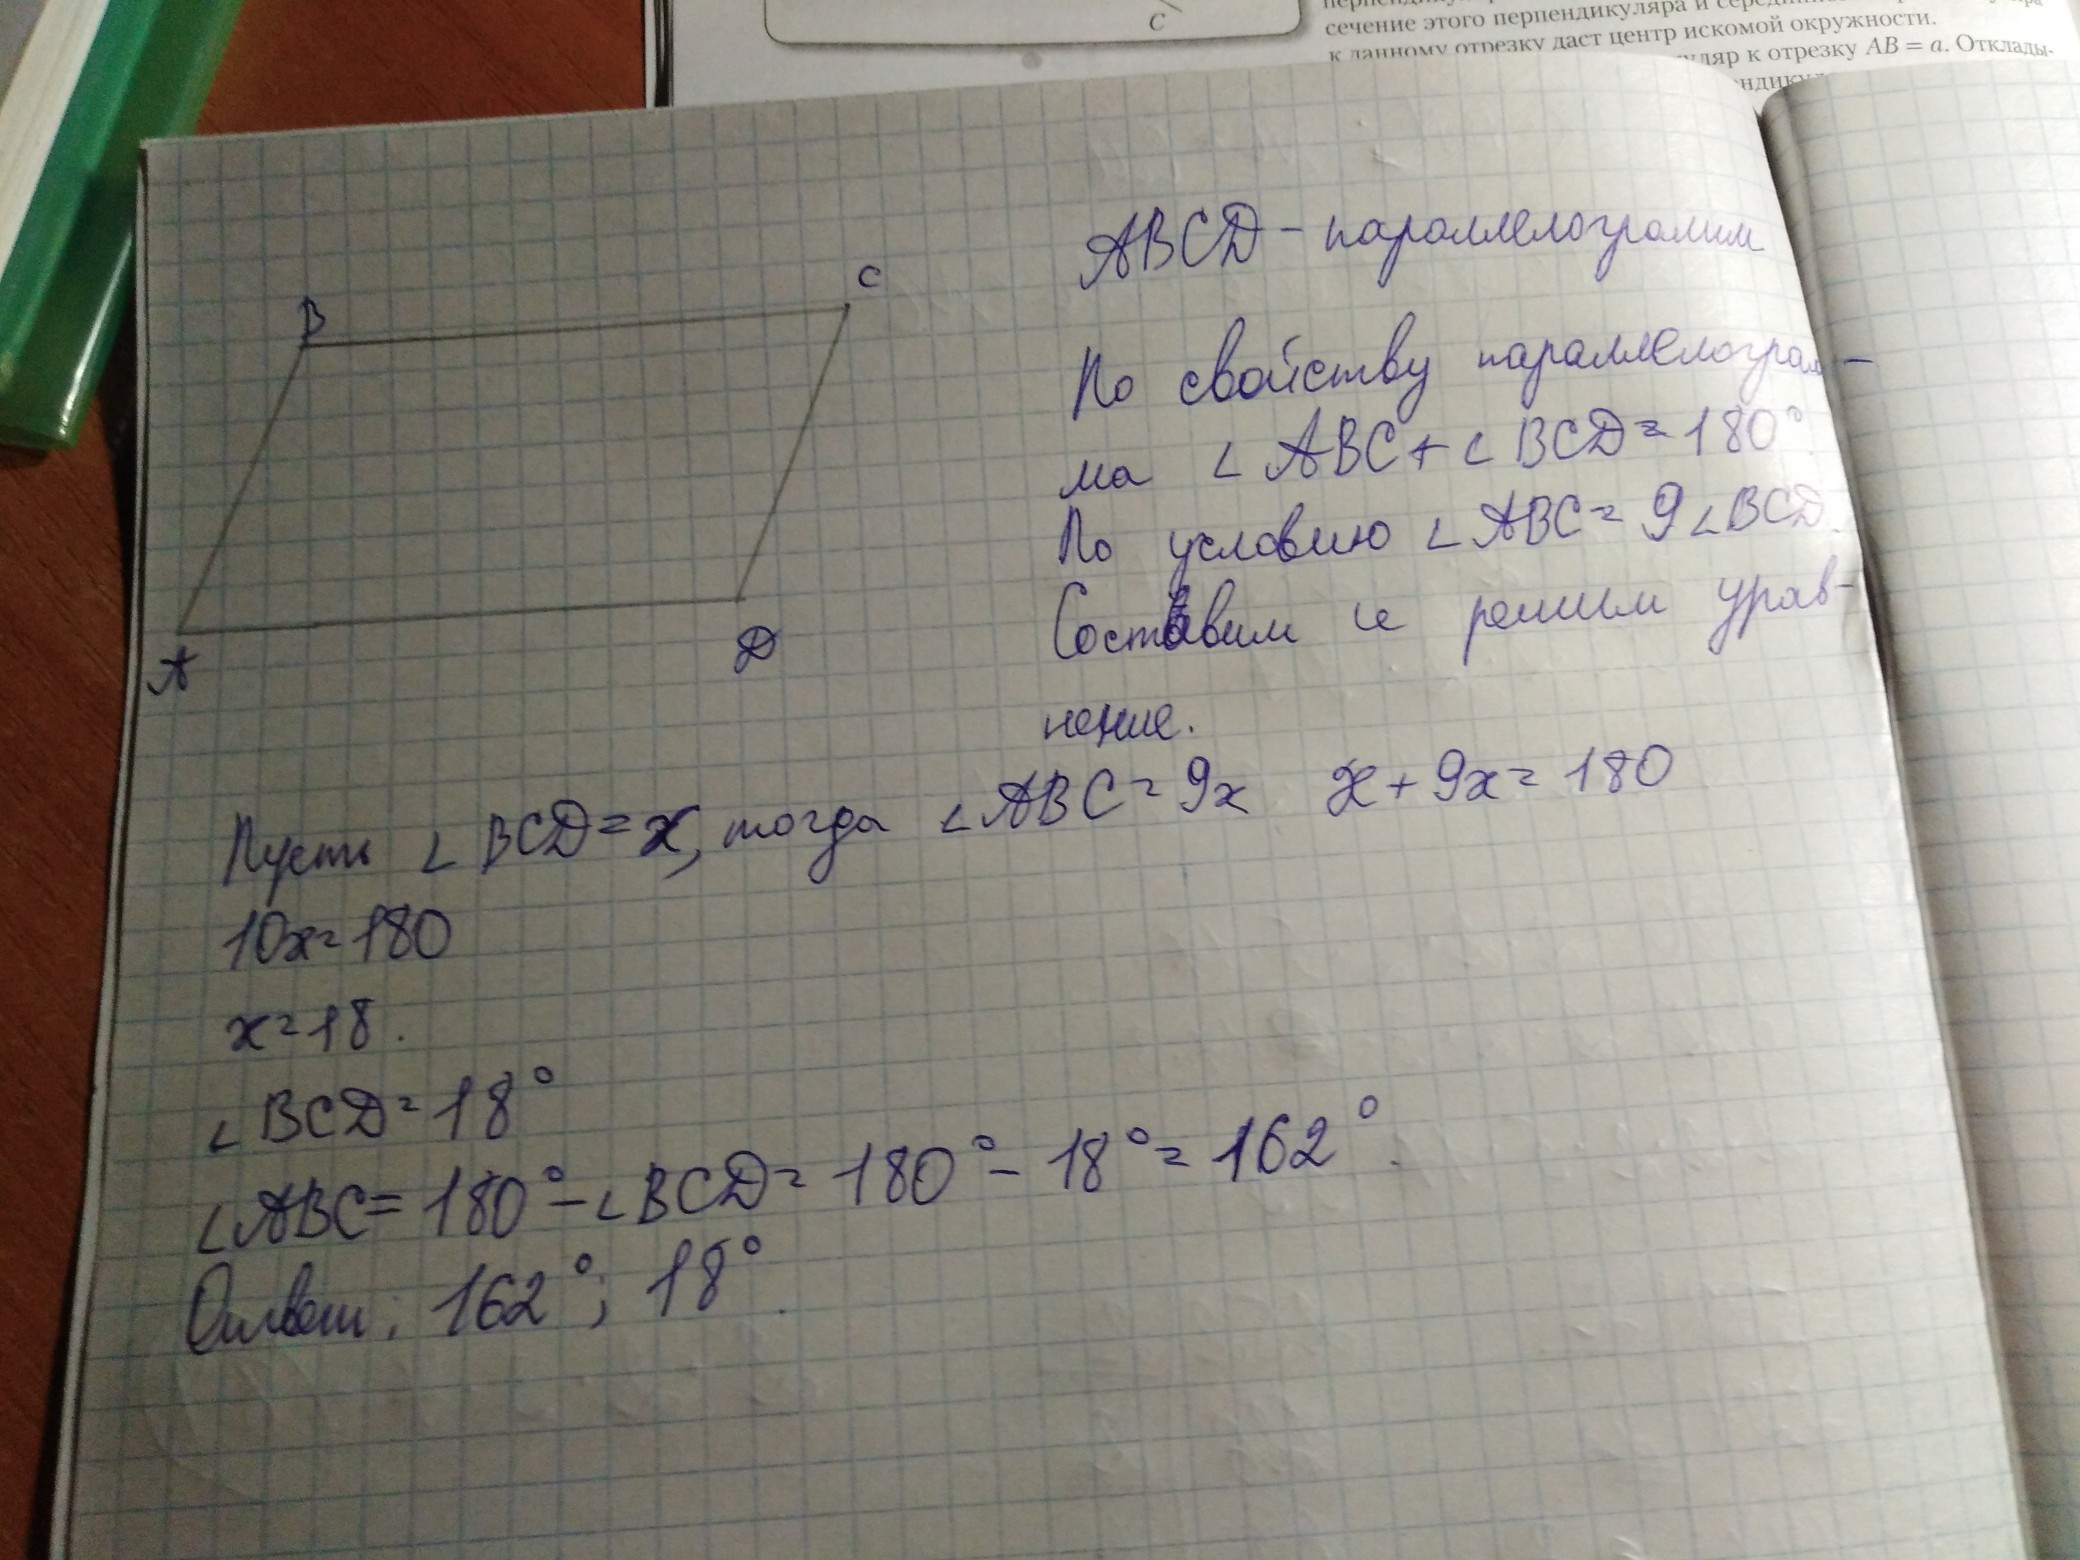 C
сечение этого перпендикуляра и
к данному отрезку даст центр искомой окружности.
к отрезку AB = a. Отклады-
B
C
A
D
ABCD – параллелограмм
По свойству параллелограм-
ма ∠ABC + ∠BCD = 180°
По условию ∠ABC = 9∠BCD.
Составим и решим урав-
нение.
Пусть ∠BCD = x, тогда ∠ABC = 9x x + 9x = 180
10x = 180
x = 18.
∠BCD = 18°
∠ABC = 180° – ∠BCD = 180° – 18° = 162°.
Ответ: 162°; 18°.